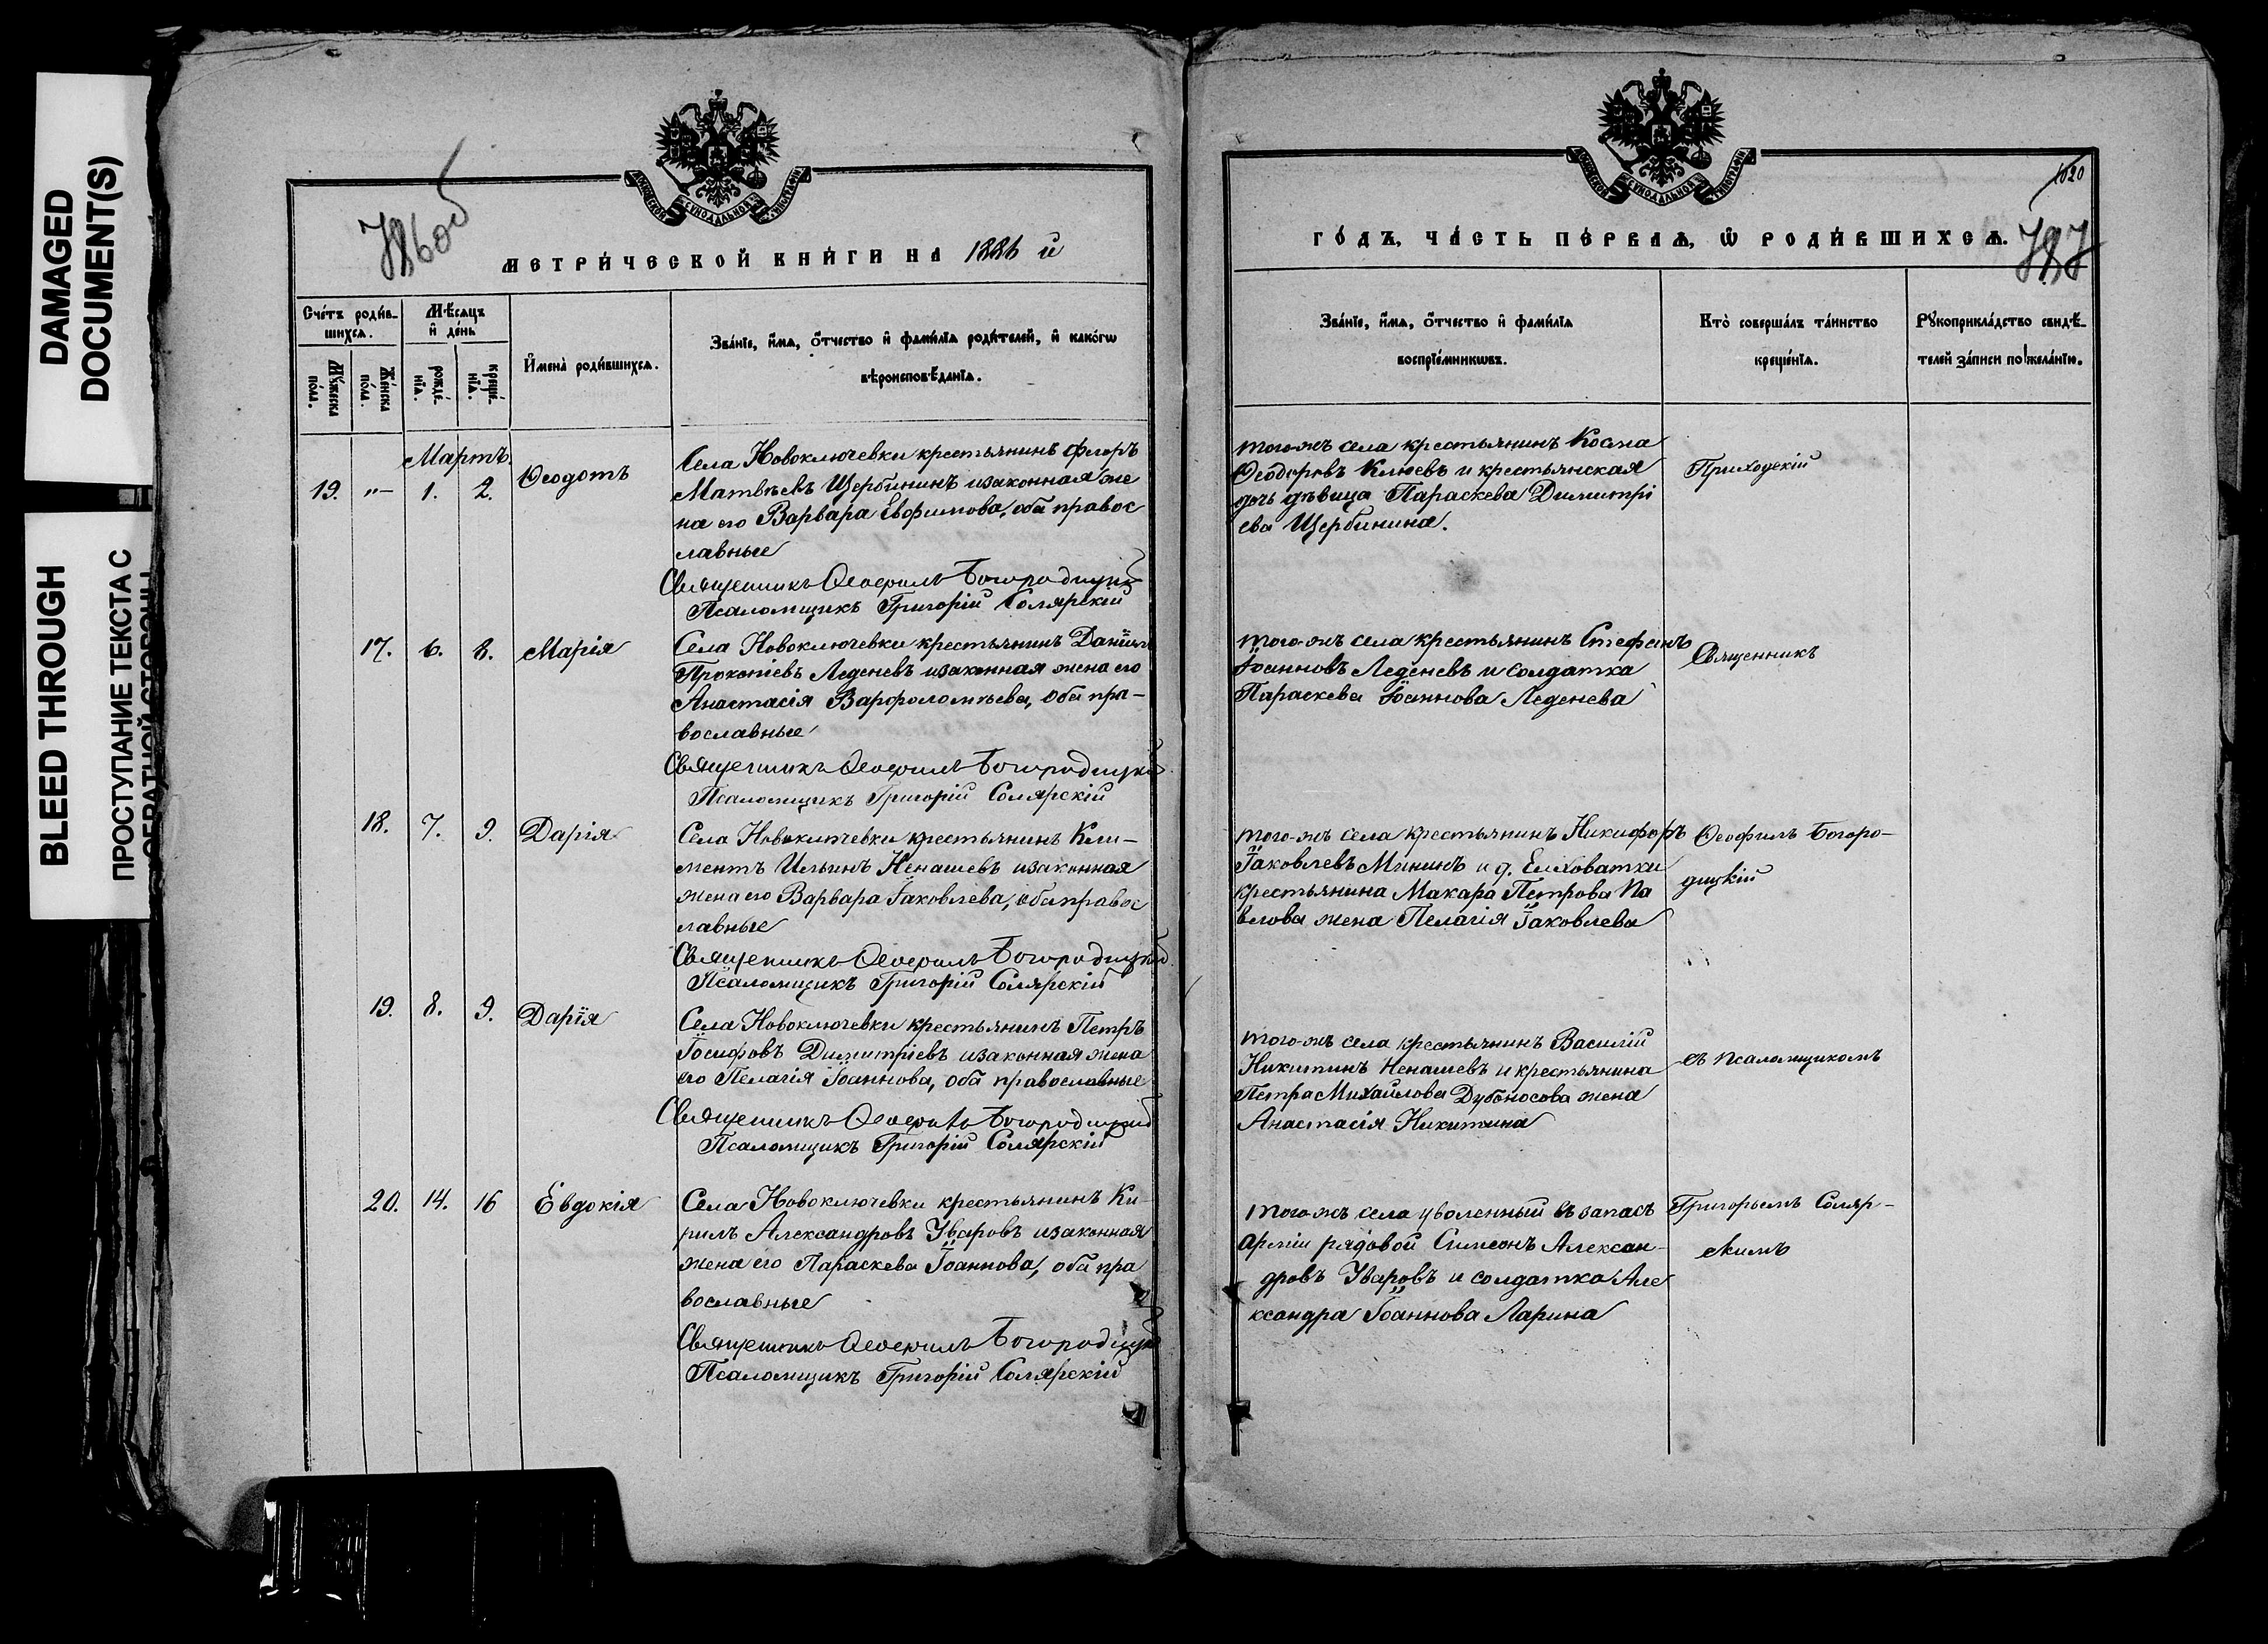 DAMAGED
DOCUMENT(S)
BLEED THROUGH
ПРОСТУПАНИЕ ТЕКСТА С
ОБРАТНОЙ СТОРОНЫ
МЕТРИ́ЧЕСКОЙ КНИ́ГИ НА 1886 й
Сче́тъ роди́в-
шихся.
Мѣ́сяцъ
и҆ де́нь
Му́жеска
по́ла.
Же́нска
по́ла.
рожде́-
нїѧ.
креще́-
нїѧ.
И҆мена̀ роди́вшихсѧ.
Зва́нїе, и҆́мѧ, ѻ҆́тчество и҆ фами́лїѧ роди́телей, и҆ како́гѡ
вѣроисповѣ́данїѧ.
Мартъ.
19. "— 1. 2. Ѳеодотъ
Села Новоключевки крестьянинъ Флоръ
Матвѣевъ Щербининъ изаконная же
на его Варвара Евфимова, оба правос
лавные
Священникъ Ѳеофилъ Богородицкій
Псаломщикъ Григорій Солярскій
17. 6. 8. Марія
Села Новоключевки крестьянинъ Даніилъ
Прокопіевъ Леденевъ изаконная жена его
Анастасія Варфоломѣева, оба пра-
вославные
Священникъ Ѳеофилъ Богородицкій
Псаломщикъ Григорій Солярскій
18. 7. 9. Дарія
Села Новоключевки крестьянинъ Кли-
ментъ Ильинъ Ненашевъ изаконная
жена его Варвара Іаковлева, оба правос
лавные
Священникъ Ѳеофилъ Богородицкій
Псаломщикъ Григорій Солярскій
19. 8. 9. Дарія
Села Новоключевки крестьянинъ Петръ
Іосифовъ Димитріевъ изаконная жена
его Пелагія Іоаннова, оба православные
Священникъ Ѳеофилъ Богородицкій
Псаломщикъ Григорій Солярскій
20. 14. 16 Евдокія
Села Новоключевки крестьянинъ Ки-
рилъ Александровъ Уваровъ изаконная
жена его Параскева Іоаннова, оба пра
вославные
Священникъ Ѳеофилъ Богородицкій
Псаломщикъ Григорій Солярскій
ГО́ДЪ, ЧА́СТЬ ПЕ́РВАѦ, Ѽ РОДИ́ВШИХСѦ.
Зва́нїе, и҆́мѧ, ѻ҆́тчество и҆ фами́лїѧ
воспрїе́мникѡвъ.
Кто̀ соверша́лъ та́инство
креще́нїѧ.
Рꙋкоприкла́дство свидѣ́-
телей за́писи по жела́нїю.
того-жъ села крестьянинъ Косма
Ѳеодоровъ Клюевъ и крестьянская
дочь дѣвица Параскева Димитрі
ева Щербинина.
Приходскій
того-жъ села крестьянинъ Стефанъ
Іоанновъ Леденевъ и солдатка
Параскева Іоаннова Леденева
Священникъ
того-жъ села крестьянинъ Никифоръ
Іаковлевъ Мининъ и д. Елховатки
крестьянина Макара Петрова Па
влова жена Пелагія Іаковлева
Ѳеофилъ Богоро-
дицкій
того-жъ села крестьянинъ Василій
Никитинъ Ненашевъ и крестьянина
Петра Михайлова Дубоносова жена
Анастасія Никитина
съ псаломщикомъ
того-жъ села уволенный въ запасъ
арміи рядовой Симеонъ Алексан-
дровъ Уваровъ и солдатка Але
ксандра Іоаннова Ларина
Григорьемъ Соляр-
скимъ